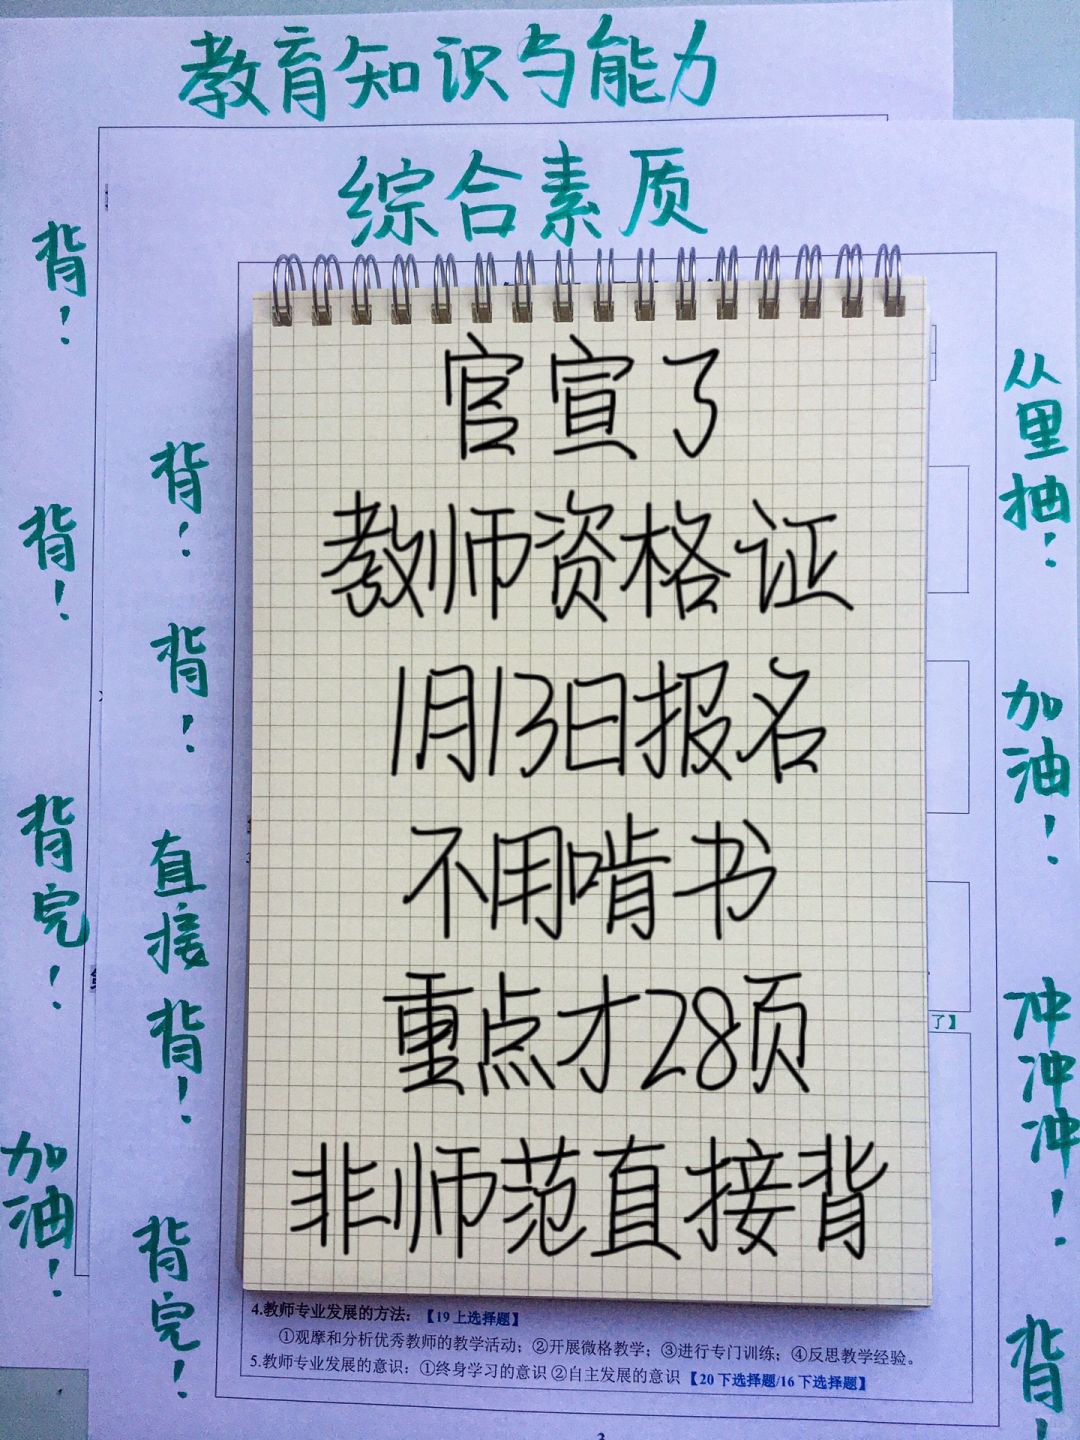 教育知识与能力
综合素质
背！
背！
背完！
加油！
背！
背！
直接背！
背完！
官宣了
教师资格证
1月13日报名
不用啃书
重点才28页
非师范直接背
从里抽！
加油！
冲冲冲！！
背！
了】
4.教师专业发展的方法：【19上选择题】
①观摩和分析优秀教师的教学活动；②开展微格教学；③进行专门训练；④反思教学经验。
5.教师专业发展的意识：①终身学习的意识 ②自主发展的意识【20下选择题/16下选择题】